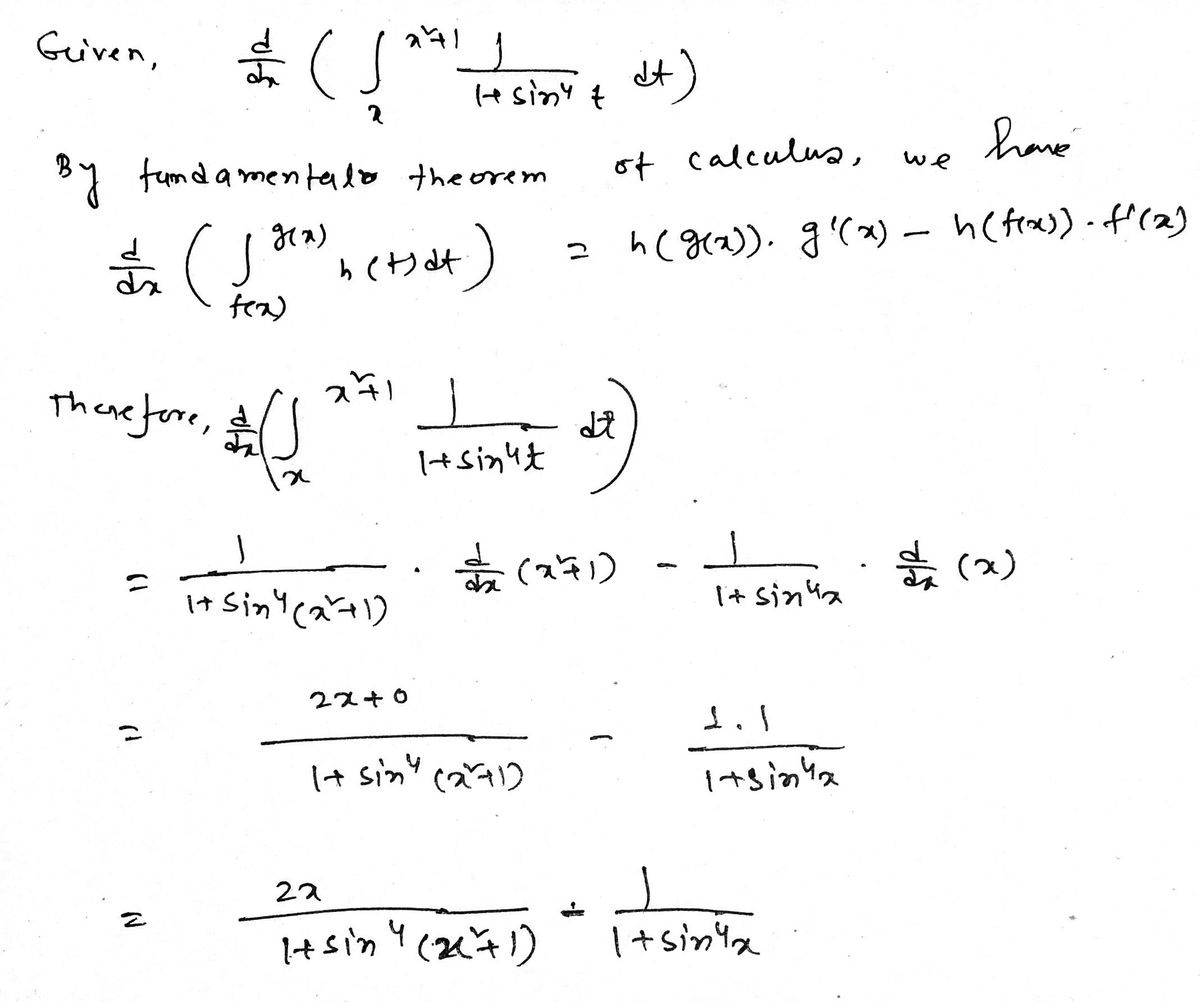 Given, d/dx ( ∫_x^{x²+1} 1/(1+sin⁴t) dt)
By fundamentals theorem of calculus, we have
d/dx ( ∫_{f(x)}^{g(x)} h(t)dt ) = h(g(x)). g'(x) – h(f(x)). f'(x)
Therefore, d/dx ( ∫_x^{x²+1} 1/(1+sin⁴t) dt )
= 1/(1+sin⁴(x²+1)) . d/dx (x²+1) - 1/(1+sin⁴x) . d/dx (x)
= (2x+0)/(1+sin⁴(x²+1)) - (1.1)/(1+sin⁴x)
= 2x/(1+sin⁴(x²+1)) - 1/(1+sin⁴x)